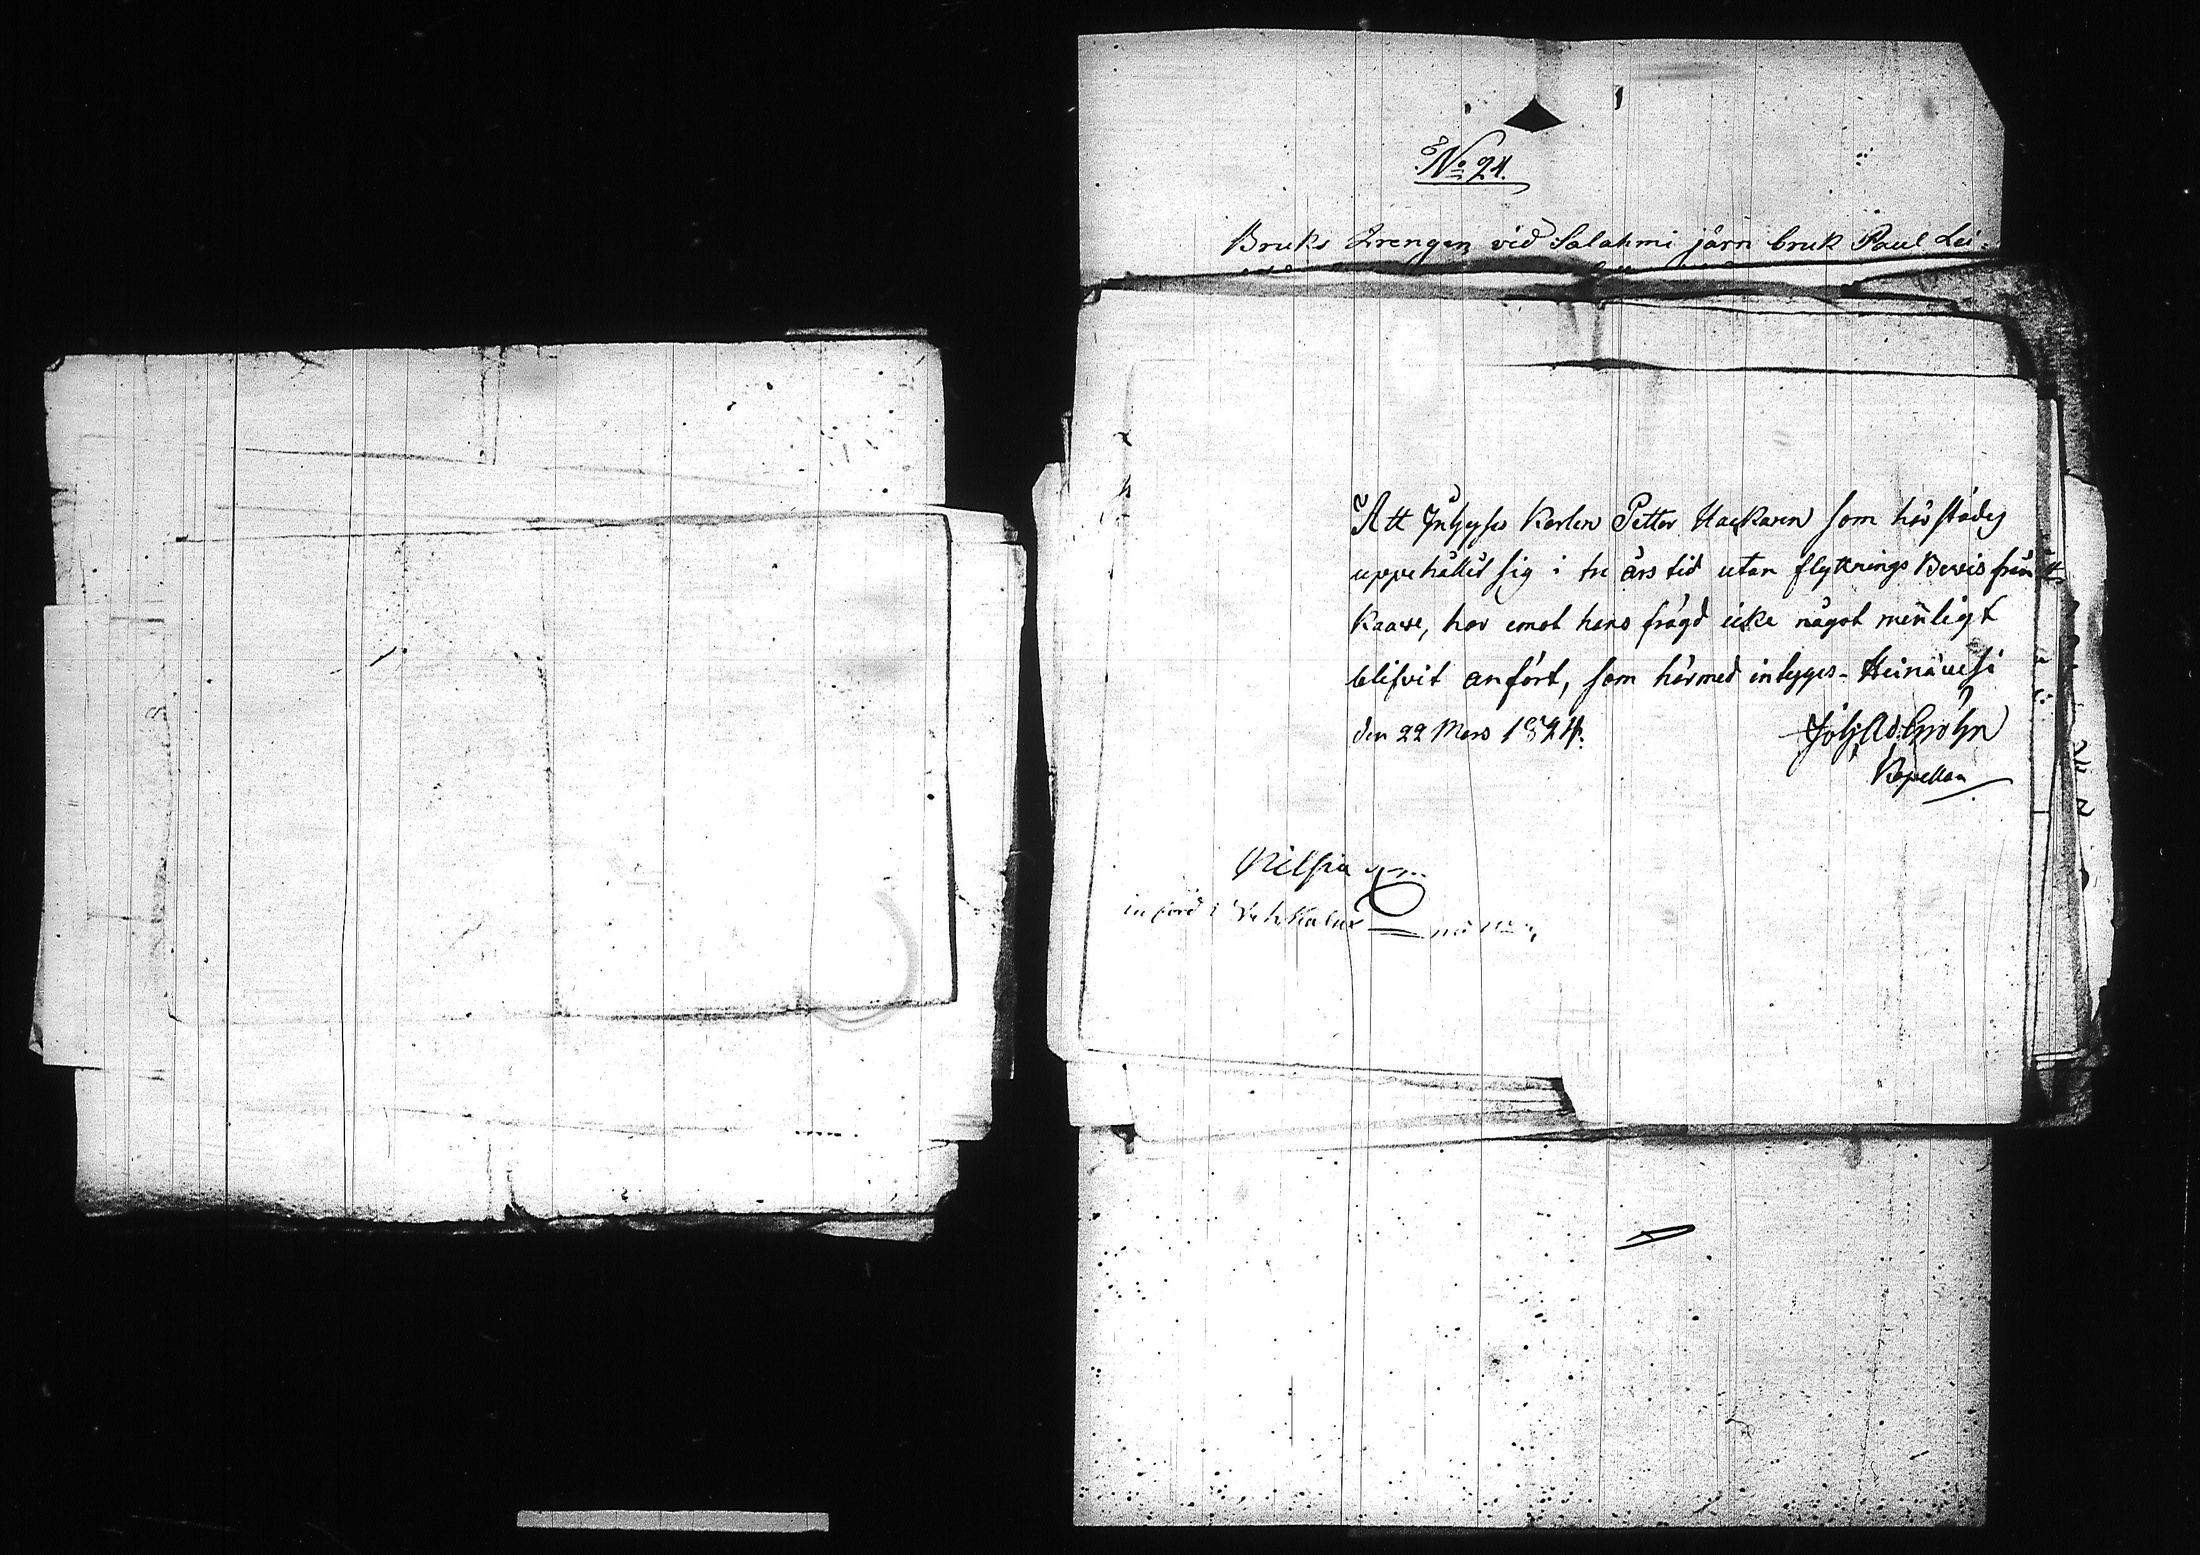 No 24.
Bruks Drengen vid Salahmi järn bruk Paul Lei-
Att Inhyses Karlen Petter Hackaren som härstädes
uppehållit sig i tre års tid utan flyttnings Bevis från
Kaawi, har emot hans frägd icke något menligt
blifvit anfört, som härmed intygas. Heinävesi
den 22 Mars 1824.
Joh. Ad. Grohn
Kapellan
Nilsiä
införd i